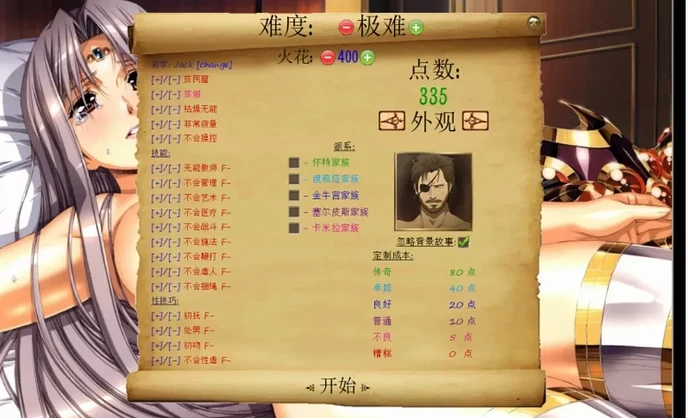 难度: 极难
火花: 400
名字: Jack [change]
点数:
335
外观
[+]/[-] 贫民窟
[+]/[-] 贫弱
[+]/[-] 枯燥无能
[+]/[-] 非常
[+]/[-] 不会操控
技能:
[+]/[-] 无能教师 F-
[+]/[-] 不会管理 F-
[+]/[-] 不会艺术 F-
[+]/[-] 不会医疗 F-
[+]/[-] 不会战斗 F-
[+]/[-] 不会施法 F-
[+]/[-] 不会鞭打 F-
[+]/[-] 不会虐人 F-
[+]/[-] 不会捆绳 F-
性技巧:
[+]/[-] 初 F-
[+]/[-] 处男 F-
[+]/[-] 初吻 F-
[+]/[-] 不会性虐 F-
派系:
- 怀特家族
- 家族
- 金牛宫家族
- 塞尔皮斯家族
- 卡米拉家族
忽略背景故事:
定制成本:
传奇 80 点
卓越 40 点
良好 20 点
普通 10 点
不良 5 点
糟糕 0 点
开始